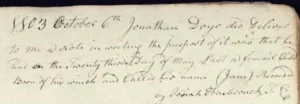 1803 October 6th Jonathan Doge did Deliver
to me a Note in writing the purport of it was that he
had on the Twenty third Day of May Last a femail Child
Born of his wench and Called his name (Jam) Recorded
by Josiah T C